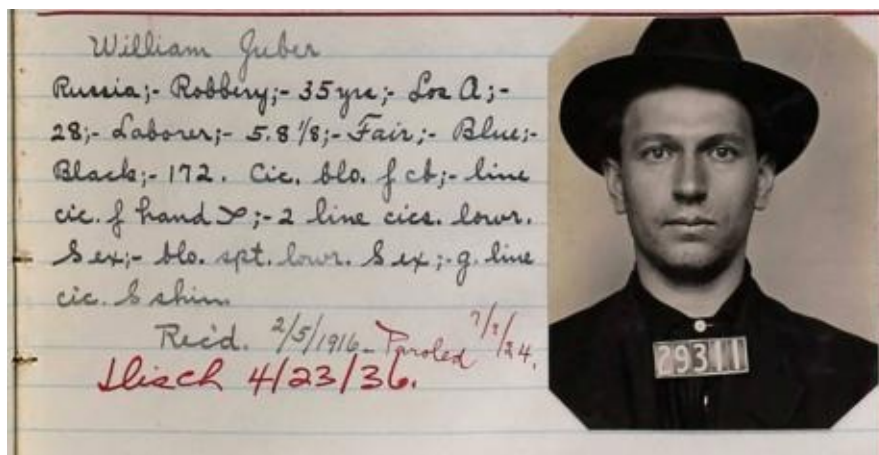 William Guber
Russia;- Robbery;- 35 yrs;- Los A;-
28;- Laborer;- 5.8 1/8;- Fair;- Blue;-
Black;- 172. Cic. blo. f cb;- line
cic. f hand ;- 2 line cics. lowr.
S ex;- blo. spt. lowr. S ex;- g. line
cic. S shin
Rec'd. 2/5/1916- Paroled 7/7/24.
Disch 4/23/36.
29311